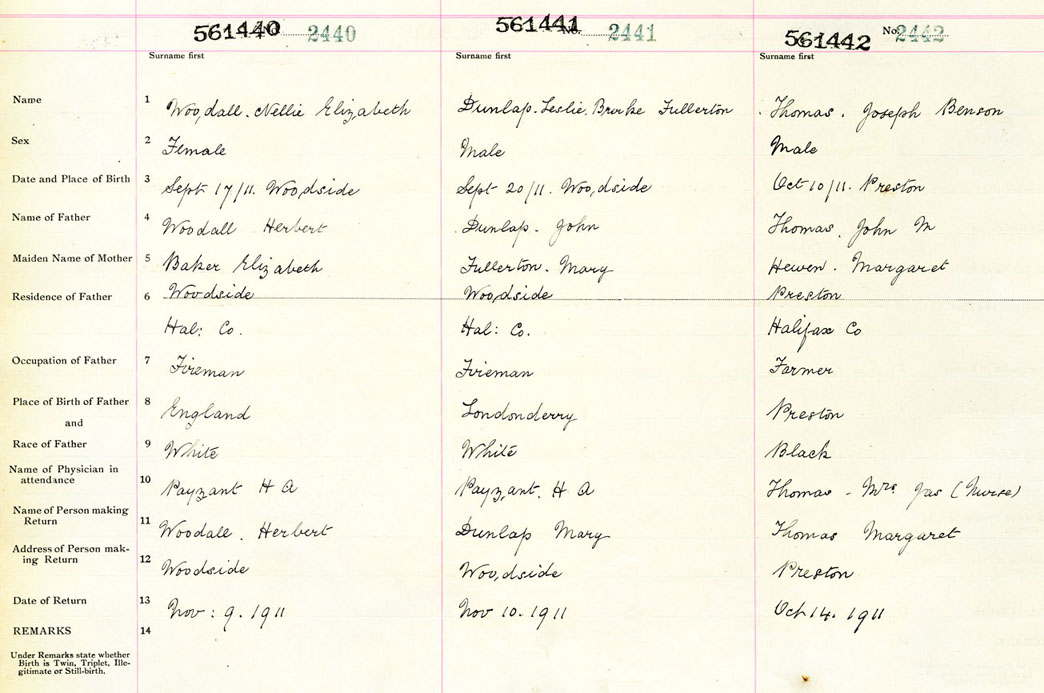 561440 No. 2440 561441 No. 2441 561442 No. 2442
Surname first Surname first Surname first
Name 1 Woodall. Nellie Elizabeth Dunlap. Leslie. Brooke Fullerton Thomas. Joseph Benson
Sex 2 Female Male Male
Date and Place of Birth 3 Sept 17/11. Woodside Sept 20/11. Woodside Oct 10/11. Preston
Name of Father 4 Woodall Herbert Dunlap. John Thomas. John M
Maiden Name of Mother 5 Baker Elizabeth Fullerton. Mary Hewen. Margaret
Residence of Father 6 Woodside Woodside Preston
Hal: Co. Hal: Co. Halifax Co
Occupation of Father 7 Fireman Fireman Farmer
Place of Birth of Father 8 England Londonderry Preston
and
Race of Father 9 White White Black
Name of Physician in
attendance 10 Payzant H A Payzant. H A Thomas - Mrs Jas (Nurse)
Name of Person making
Return 11 Woodale. Herbert Dunlap Mary Thomas Margaret
Address of Person mak-
ing Return 12 Woodside Woodside Preston
Date of Return 13 Nov: 9. 1911 Nov 10. 1911 Oct 14. 1911
REMARKS 14
Under Remarks state whether
Birth is Twin, Triplet, Ille-
gitimate or Still-birth.